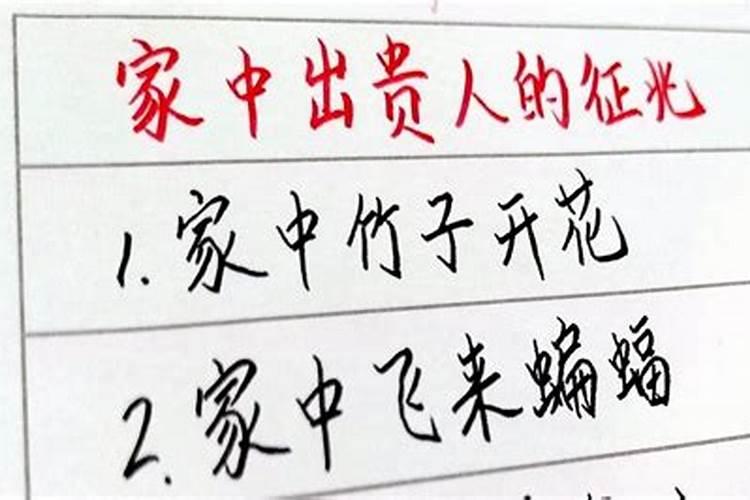 家中出贵人的征兆
1.家中竹子开花
2.家中飞来蝙蝠